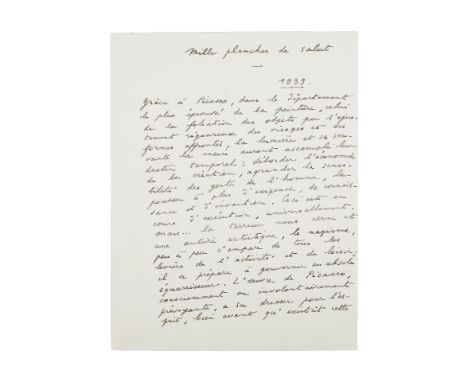 Mille planches de salut
—
1939.
Grâce à Picasso, dans le département
le plus éprouvé de la peinture, celui
de la filiation des objets par l'agen-
cement rigoureux des visages et des
formes affrontés, la lumière et sa ser-
vante la main auront accompli leur
destin temporel : déborder l'économie
de la création, agrandir la sensi-
bilité des gestes de l'homme, le
pousser à plus d'exigence, de connais-
sance et d'invention. Ceci est en
cours d'exécution, universellement.
mais... la terreur nous cerne et
une antidié artistique, le nazisme,
peu à peu s'empare de tous les
leviers de l'activité et du loisir,
il se prépare à gouverner en absolu
équarrisseur. L'œuvre de Picasso,
consciemment ou involontairement
prévoyante, a su dresser pour l'es-
prit, bien avant qu'existât cette